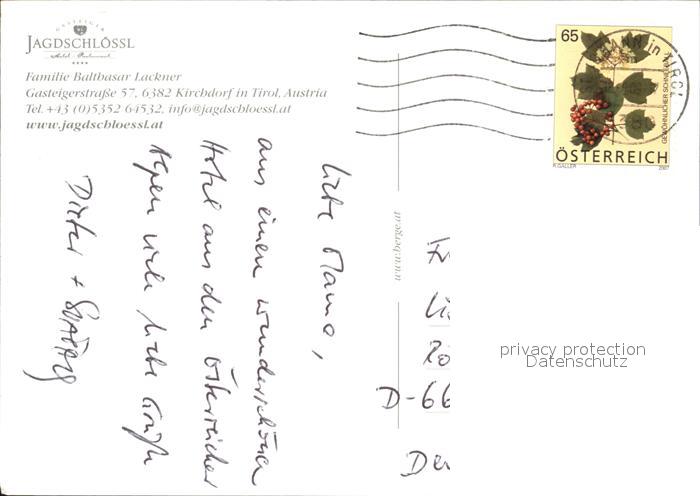 GASTEIGER
JAGDSCHLÖSSL
Hotel · Restaurant
Familie Balthasar Lackner
Gasteigerstraße 57, 6382 Kirchdorf in Tirol, Austria
Tel. +43 (0)5352 64532, info@jagdschloessl.at
www.jagdschloessl.at
Liebe Mama,
aus einen wunderschönen
Hotel aus den Österreicher
Alpen viele liebe Grüße
Dieter +
65
GEWÖHNLICHER SCHNEEBALL
ÖSTERREICH
R. GALLER
2007
in TIROL
D-66
privacy protection
Datenschutz